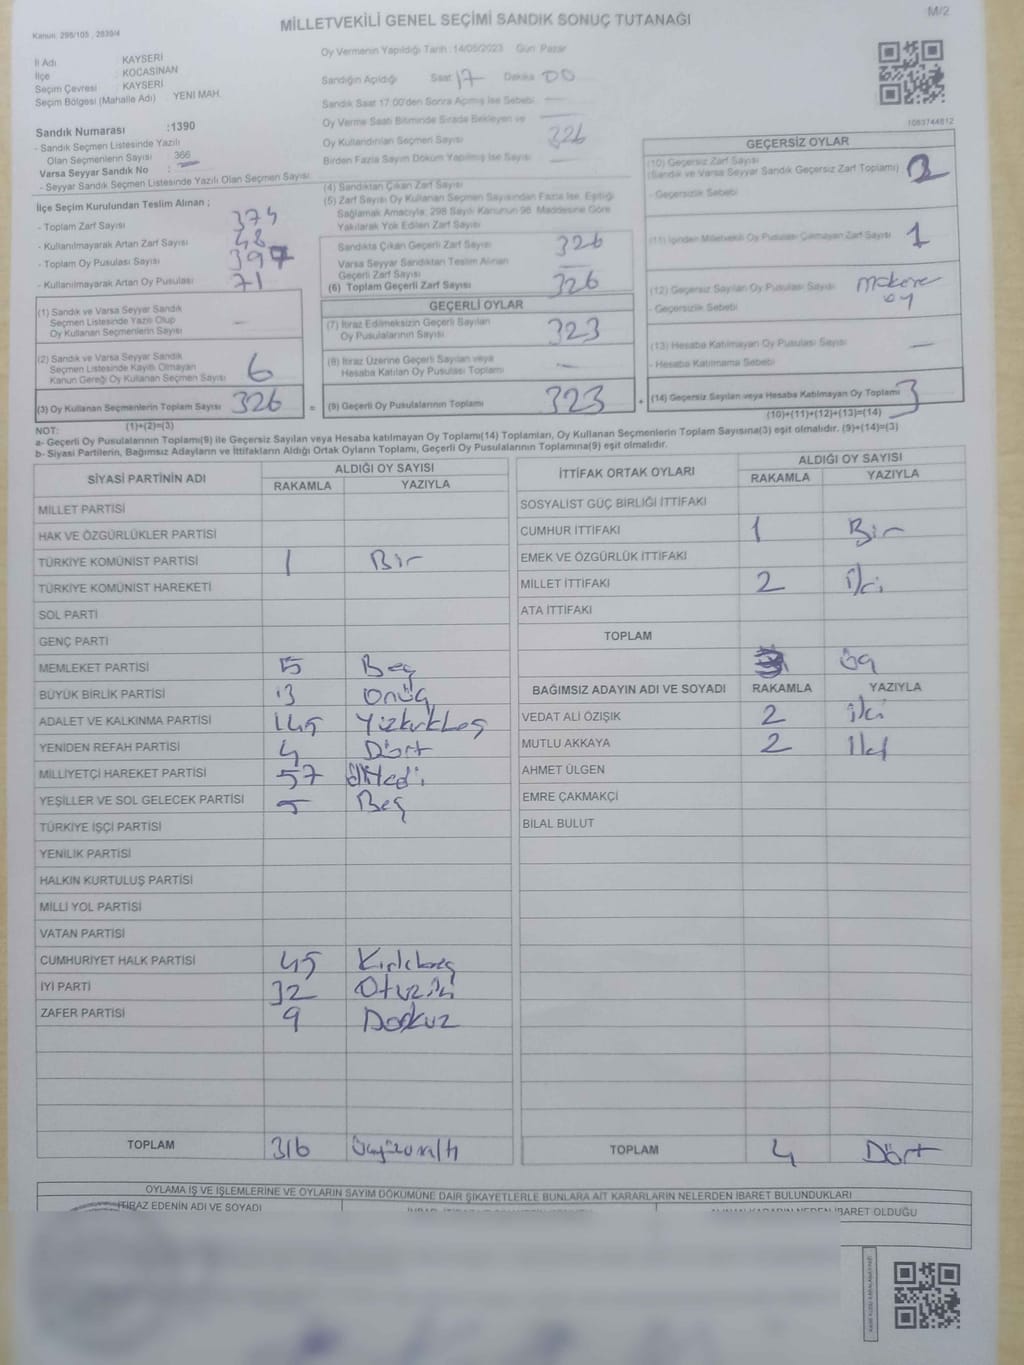 M/2
MİLLETVEKİLİ GENEL SEÇİMİ SANDIK SONUÇ TUTANAĞI
Kanun: 298/105 , 2839/4
İl Adı KAYSERİ
İlçe KOCASİNAN
Seçim Çevresi KAYSERİ
Seçim Bölgesi (Mahalle Adı) YENİ MAH.
Sandık Numarası :1390
- Sandık Seçmen Listesinde Yazılı
Olan Seçmenlerin Sayısı 366
Varsa Seyyar Sandık No :
- Seyyar Sandık Seçmen Listesinde Yazılı Olan Seçmen Sayısı
Oy Vermenin Yapıldığı Tarih :14/05/2023 Gün: Pazar
Sandığın Açıldığı Saat 17 Dakika 00
Sandık Saat 17.00'den Sonra Açılmış İse Sebebi —
Oy Verme Saati Bitiminde Sırada Bekleyen ve —
Oy Kullandırılan Seçmen Sayısı 326
Birden Fazla Sayım Döküm Yapılmış İse Sayısı —
1083744812
İlçe Seçim Kurulundan Teslim Alınan ;
- Toplam Zarf Sayısı 374
- Kullanılmayarak Artan Zarf Sayısı 48
- Toplam Oy Pusulası Sayısı 397
- Kullanılmayarak Artan Oy Pusulası 71
(1) Sandık ve Varsa Seyyar Sandık
Seçmen Listesinde Yazılı Olup
Oy Kullanan Seçmenlerin Sayısı —
(2) Sandık ve Varsa Seyyar Sandık
Seçmen Listesinde Kayıtlı Olmayan
Kanun Gereği Oy Kullanan Seçmen Sayısı 6
(3) Oy Kullanan Seçmenlerin Toplam Sayısı 326
(1)+(2)=(3)
(4) Sandıktan Çıkan Zarf Sayısı
(5) Zarf Sayısı Oy Kullanan Seçmen Sayısından Fazla İse, Eşitliği
Sağlamak Amacıyla, 298 Sayılı Kanunun 98. Maddesine Göre
Yakılarak Yok Edilen Zarf Sayısı
Sandıkta Çıkan Geçerli Zarf Sayısı 326
Varsa Seyyar Sandıktan Teslim Alınan
Geçerli Zarf Sayısı —
(6) Toplam Geçerli Zarf Sayısı 326
GEÇERLİ OYLAR
(7) İtiraz Edilmeksizin Geçerli Sayılan
Oy Pusulalarının Sayısı 323
(8) İtiraz Üzerine Geçerli Sayılan veya
Hesaba Katılan Oy Pusulası Toplamı —
= (9) Geçerli Oy Pusulalarının Toplamı 323 +
GEÇERSİZ OYLAR
(10) Geçersiz Zarf Sayısı
(Sandık ve Varsa Seyyar Sandık Geçersiz Zarf Toplamı) 2
- Geçersizlik Sebebi
(11) İçinden Milletvekili Oy Pusulası Çıkmayan Zarf Sayısı 1
(12) Geçersiz Sayılan Oy Pusulası Sayısı
- Geçersizlik Sebebi
oy
(13) Hesaba Katılmayan Oy Pusulası Sayısı —
- Hesaba Katılmama Sebebi
(14) Geçersiz Sayılan veya Hesaba Katılmayan Oy Toplamı 3
(10)+(11)+(12)+(13)=(14)
NOT:
a- Geçerli Oy Pusulalarının Toplamı(9) ile Geçersiz Sayılan veya Hesaba katılmayan Oy Toplamı(14) Toplamları, Oy Kullanan Seçmenlerin Toplam Sayısına(3) eşit olmalıdır. (9)+(14)=(3)
b- Siyasi Partilerin, Bağımsız Adayların ve İttifakların Aldığı Ortak Oyların Toplamı, Geçerli Oy Pusulalarının Toplamına(9) eşit olmalıdır.
SİYASİ PARTİNİN ADI ALDIĞI OY SAYISI
RAKAMLA YAZIYLA
MİLLET PARTİSİ
HAK VE ÖZGÜRLÜKLER PARTİSİ
TÜRKİYE KOMÜNİST PARTİSİ 1 Bir
TÜRKİYE KOMÜNİST HAREKETİ
SOL PARTİ
GENÇ PARTİ
MEMLEKET PARTİSİ 5 Beş
BÜYÜK BİRLİK PARTİSİ 13 Onüç
ADALET VE KALKINMA PARTİSİ 145 Yüzkırkbeş
YENİDEN REFAH PARTİSİ 4 Dört
MİLLİYETÇİ HAREKET PARTİSİ 57 Elliyedi
YEŞİLLER VE SOL GELECEK PARTİSİ 5 Beş
TÜRKİYE İŞÇİ PARTİSİ
YENİLİK PARTİSİ
HALKIN KURTULUŞ PARTİSİ
MİLLİ YOL PARTİSİ
VATAN PARTİSİ
CUMHURİYET HALK PARTİSİ 45 Kırkbeş
İYİ PARTİ 32 Otuziki
ZAFER PARTİSİ 9 Dokuz
TOPLAM 316 Üçyüzonaltı
İTTİFAK ORTAK OYLARI ALDIĞI OY SAYISI
RAKAMLA YAZIYLA
SOSYALİST GÜÇ BİRLİĞİ İTTİFAKI
CUMHUR İTTİFAKI 1 Bir
EMEK VE ÖZGÜRLÜK İTTİFAKI
MİLLET İTTİFAKI 2 İki
ATA İTTİFAKI
TOPLAM 3 üç
BAĞIMSIZ ADAYIN ADI VE SOYADI RAKAMLA YAZIYLA
VEDAT ALİ ÖZIŞIK 2 iki
MUTLU AKKAYA 2 iki
AHMET ÜLGEN
EMRE ÇAKMAKÇİ
BİLAL BULUT
TOPLAM 4 Dört
OYLAMA İŞ VE İŞLEMLERİNE VE OYLARIN SAYIM DÖKÜMÜNE DAİR ŞİKAYETLERLE BUNLARA AİT KARARLARIN NELERDEN İBARET BULUNDUKLARI
İTİRAZ EDENİN ADI VE SOYADI
ALINAN KARARIN NEDEN İBARET OLDUĞU